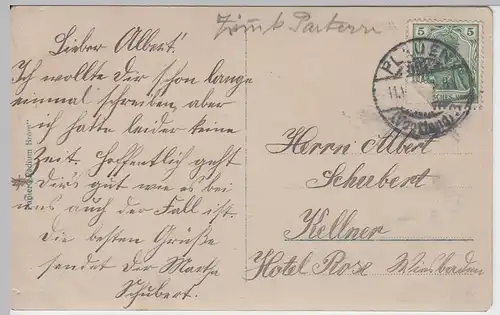 Lieber Albert!
Ich wollte dir schon lange
einmal schreiben, aber
ich hatte leider keine
Zeit. Hoffentlich geht
Dir's gut wie es bei
uns auch der Fall ist.
Die besten Grüße
sendet Dir
Schubert.
Parterre
5 5
PLAUEN
(Vogtland)
Herrn Albert
Schubert
Kellner
Hotel Rose Wiesbaden